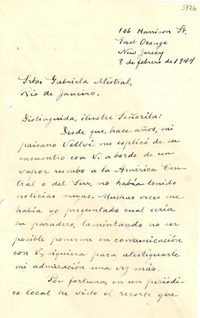 3726
106 Harrison St.
East Orange
New Jersey
8 de febrero de 1944
Srta. Gabriela Mistral,
Río de Janeiro.
Distinguida, ilustre Señorita:
Desde que, hace años, mi
paisano Vellvé me explicó de su
encuentro con V. a bordo de un
vapor rumbo a la América Cen-
tral o del Sur, no había tenido
noticias suyas. Muchas veces me
había yo preguntado cual sería
su paradero, lamentando no ser
posible ponerme en comunicación
con V, siquiera para atestiguarle
mi admiración una vez más.
Por fortuna, en un periódi-
co local he visto el recorte que